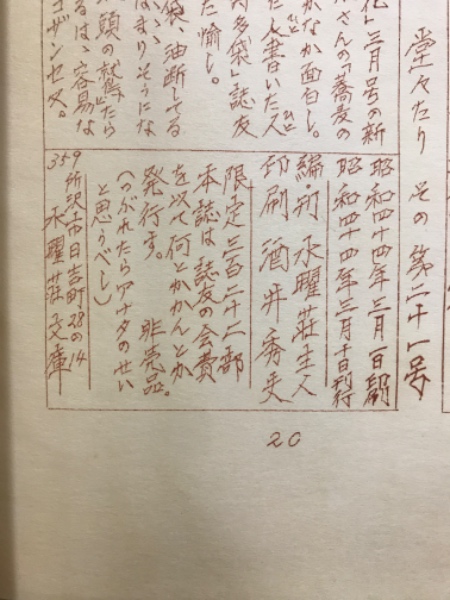 堂々たり その 第二十一号
化」三月号の新
さんの「蕎麦の
なか面白し。
た人書いた人
多袋」誌友
た愉し。
袋、油断してる
はまりそうにな
頭の就寝たら
るは、容易な
ゴザンセヌ。
昭和四十四年三月一日印刷
昭和四十四年三月十日発行
編・刊 水曜荘主人
印刷 酒井秀夫
限定二百二十二部
本誌は誌友の会費
を以て何とかかんとか
発行す。 非売品。
(つぶれたらアナタのせい
と思うべし)
359 所沢市日吉町28の14
水曜荘文庫
20